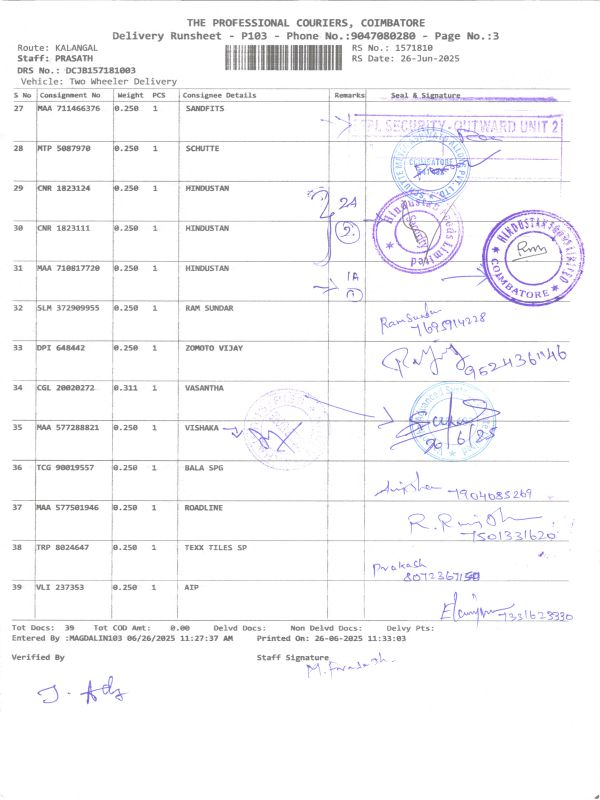 THE PROFESSIONAL COURIERS, COIMBATORE
Delivery Runsheet - P103 - Phone No.:9047080280 - Page No.:3
Route: KALANGAL RS No.: 1571810
Staff: PRASATH RS Date: 26-Jun-2025
DRS No.: DCJB157181003
Vehicle: Two Wheeler Delivery
S No Consignment No Weight PCS Consignee Details Remarks Seal & Signature
27 MAA 711466376 0.250 1 SANDFITS
SECURITY - OUTWARD UNIT 2
28 MTP 5087970 0.250 1 SCHUTTE
COIMBATORE
29 CNR 1823124 0.250 1 HINDUSTAN
2A
30 CNR 1823111 0.250 1 HINDUSTAN
2
Hindustan Limited
Security
HINDUSTAN LIMITED
COIMBATORE
31 MAA 710817720 0.250 1 HINDUSTAN
1A
1
32 SLM 372909955 0.250 1 RAM SUNDAR
RamSundar
7695914228
33 DPI 648442 0.250 1 ZOMOTO VIJAY
9524361146
34 CGL 20020272 0.311 1 VASANTHA
35 MAA 577288821 0.250 1 VISHAKA
26/6/25
36 TCG 90019557 0.250 1 BALA SPG
7904085269
37 MAA 577501946 0.250 1 ROADLINE
7501331620
38 TRP 8024647 0.250 1 TEXX TILES SP
Prakash
8072367150
39 VLI 237353 0.250 1 AIP
7331623330
Tot Docs: 39 Tot COD Amt: 0.00 Delvd Docs: Non Delvd Docs: Delvy Pts:
Entered By :MAGDALIN103 06/26/2025 11:27:37 AM Printed On: 26-06-2025 11:33:03
Verified By Staff Signature
M. Prasath.